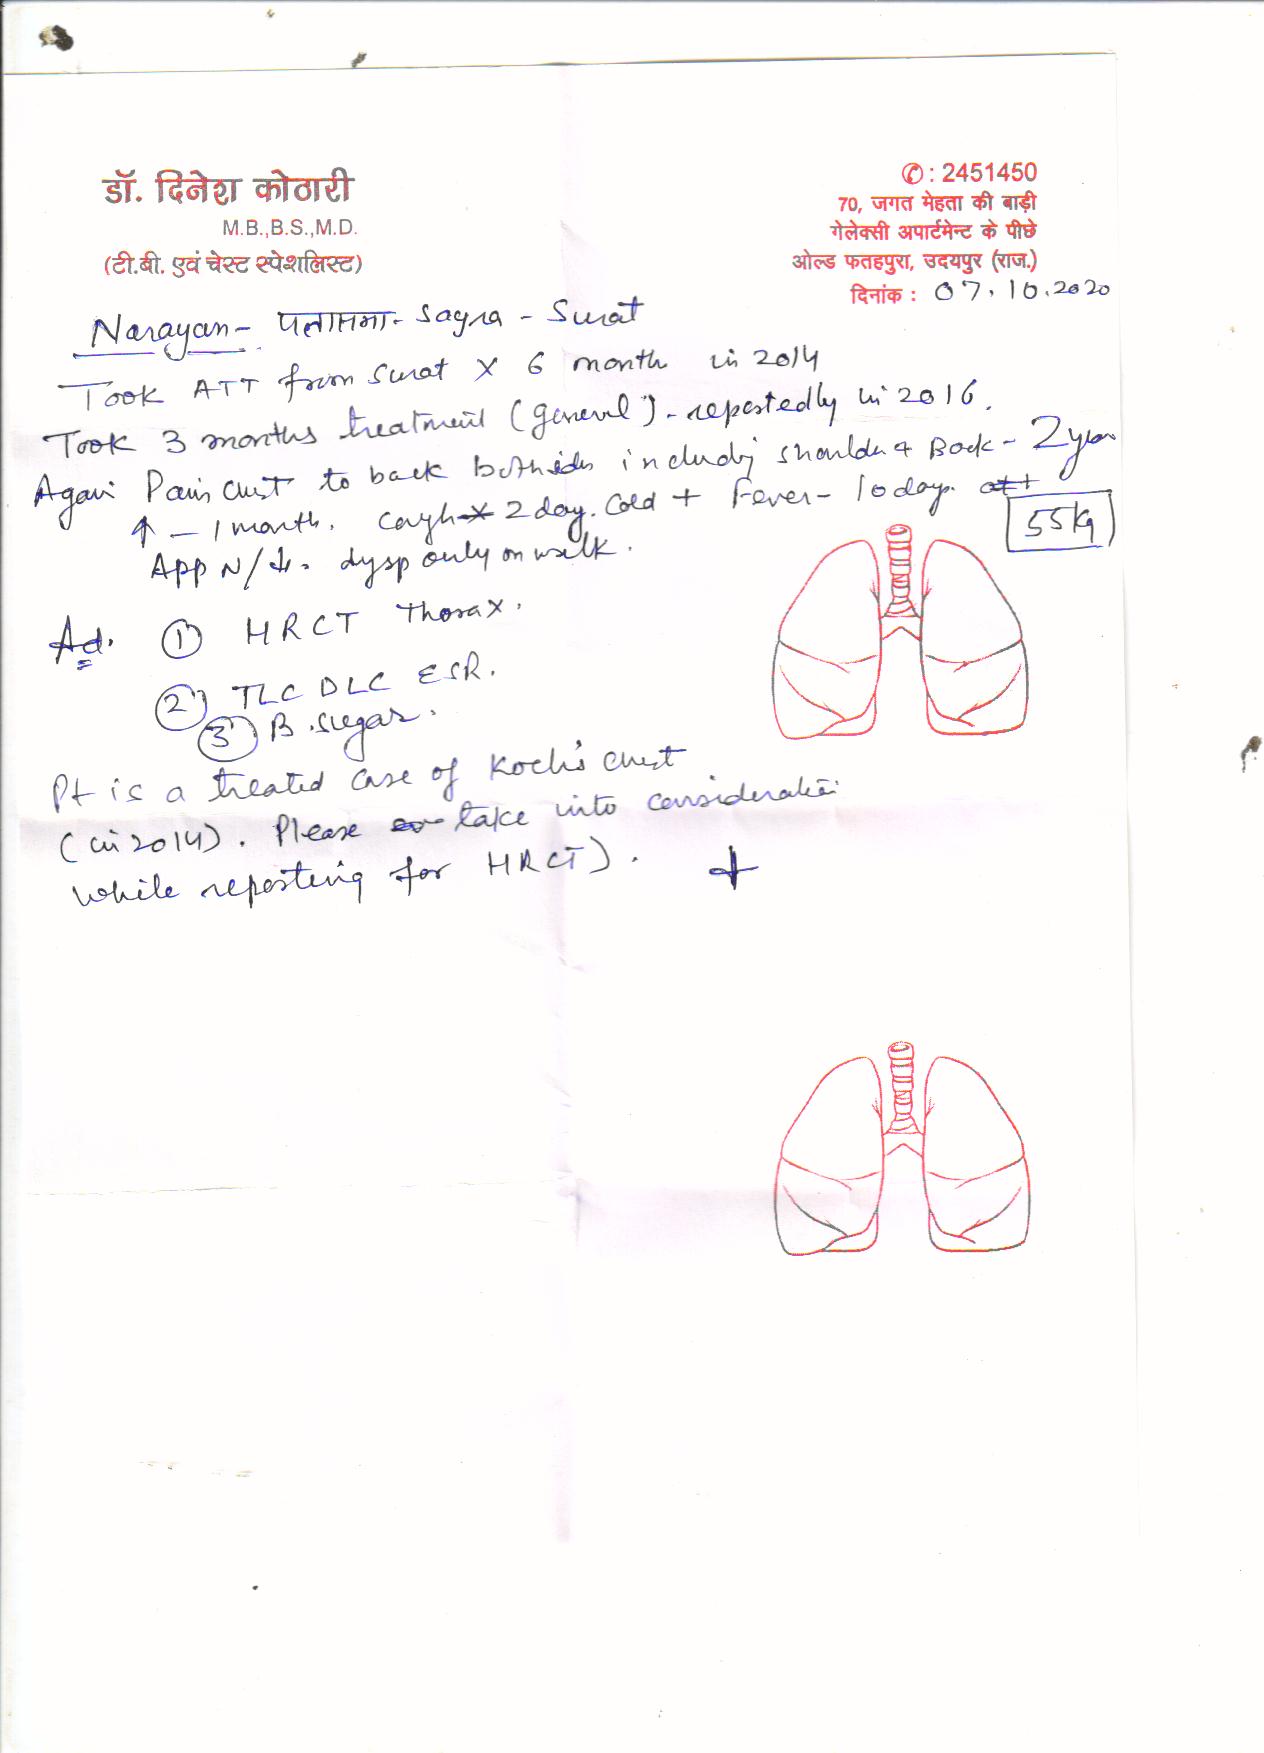 डॉ. दिनेश कोठारी
M.B.,B.S.,M.D.
(टी.बी. एवं चेस्ट स्पेशलिस्ट)
✆ : 2451450
70, जगत मेहता की बाड़ी
गेलेक्सी अपार्टमेन्ट के पीछे
ओल्ड फतहपुरा, उदयपुर (राज.)
दिनांक : 07.10.2020
Narayan - Sayra - Surat
Took ATT from Surat x 6 month in 2014
Took 3 months treatment (general) - repeatedly in 2016.
Again Pain chest to back both sides including shoulder & Back - 2 year
↑ - 1 month. Cough x 2 day. Cold + Fever - 10 days.
55 kg
App N/↓. dysp only on walk.
Ad. ① HRCT Thorax.
② TLC DLC ESR.
③ B. Sugar.
Pt is a treated case of Koch's chest
(in 2014). Please take into consideration
while reporting for HRCT).